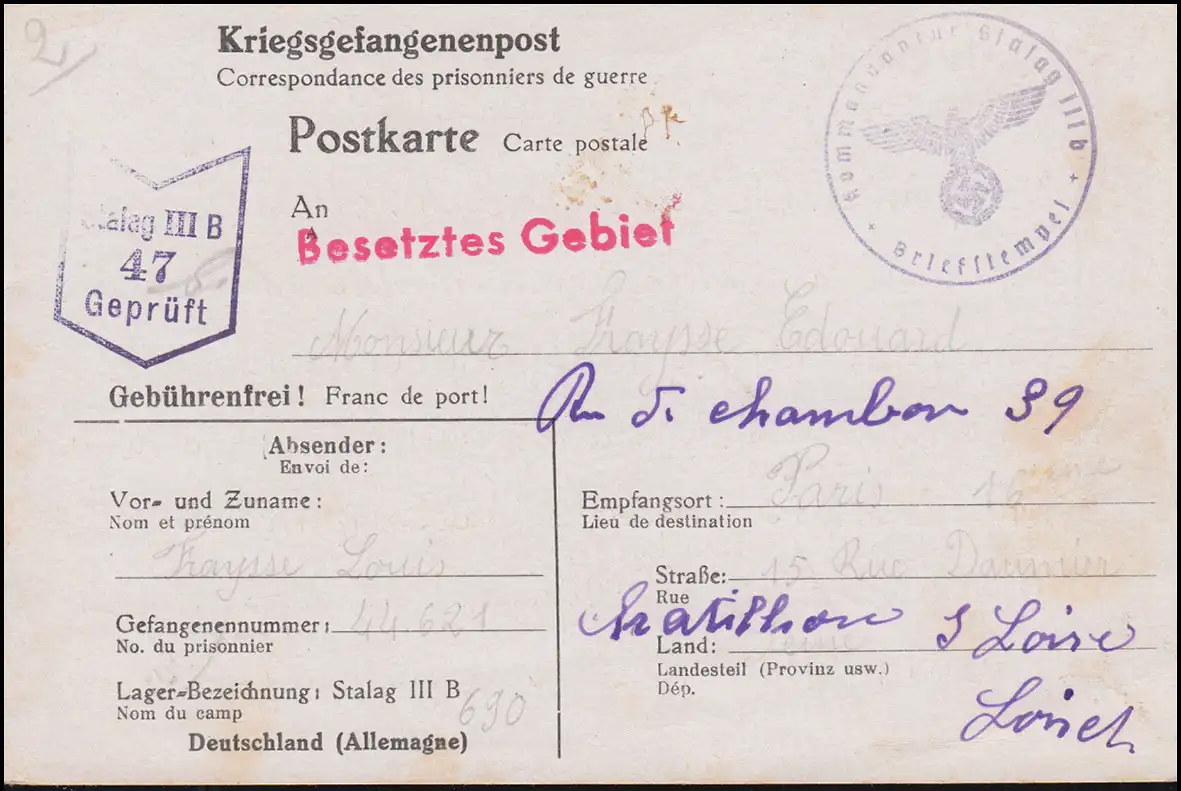 2
Kriegsgefangenenpost
Correspondance des prisonniers de guerre
Kommandantur Stalag IIIb
Briefstempel
Postkarte Carte postale
Stalag III B
47
Geprüft
An
Besetztes Gebiet
Monsieur Fraysse Edouard
Gebührenfrei! Franc de port!
chambon 39
Absender:
Envoi de:
Vor- und Zuname:
Nom et prénom
Fraysse Louis
Gefangenennummer: 44.621
No. du prisonnier
Lager-Bezeichnung: Stalag III B
Nom du camp
690
Deutschland (Allemagne)
Empfangsort: Paris 16 ème
Lieu de destination
Straße: 15 Rue Daumier
Rue
S Loire
Land: Seine
Landesteil (Provinz usw.)
Dép.
Loiret